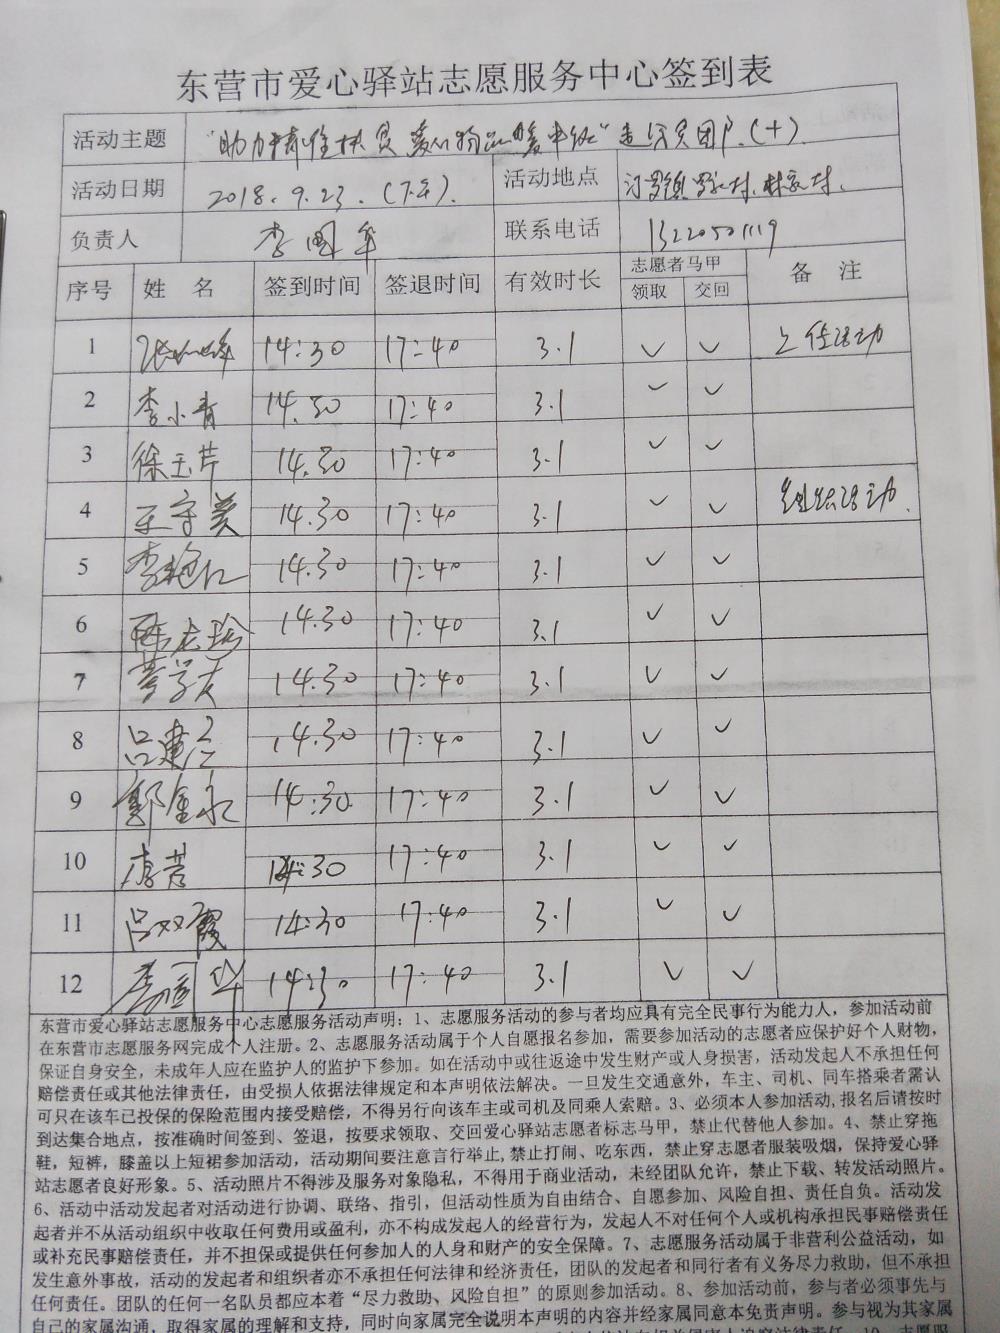 东营市爱心驿站志愿服务中心签到表
活动主题 "助力精准扶贫 爱心物品暖中秋" 走访贫困户.(十)
活动日期 2018.9.23.(下午). 活动地点 汀罗镇 罗家村、林家村.
负责人 李国华 联系电话 13220501119
序号 姓 名 签到时间 签退时间 有效时长 志愿者马甲 备 注
领取 交回
1 14:30 17:40 3.1 ✓ ✓ 活动
2 李小青 14.30 17:40 3.1 ✓ ✓
3 徐玉芹 14.30 17:40 3.1 ✓ ✓
4 王守美 14.30 17:40 3.1 ✓ ✓ 组织活动.
5 李艳红 14.30 17:40 3.1 ✓ ✓
6 14.30 17:40 3.1 ✓ ✓
7 14.30 17:40 3.1 ✓ ✓
8 吕建 14.30 17:40 3.1 ✓ ✓
9 郭金永 14:30 17:40 3.1 ✓ ✓
10 14:30 17:40 3.1 ✓ ✓
11 吕双霞 14:30 17:40 3.1 ✓ ✓
12 李国华 14:30 17:40 3.1 ✓ ✓
东营市爱心驿站志愿服务中心志愿服务活动声明：1、志愿服务活动的参与者均应具有完全民事行为能力人，参加活动前
在东营市志愿服务网完成个人注册。2、志愿服务活动属于个人自愿报名参加，需要参加活动的志愿者应保护好个人财物，
保证自身安全，未成年人应在监护人的监护下参加。如在活动中或往返途中发生财产或人身损害，活动发起人不承担任何
赔偿责任或其他法律责任，由受损人依据法律规定和本声明依法解决。一旦发生交通意外，车主、司机、同车搭乘者需认
可只在该车已投保的保险范围内接受赔偿，不得另行向该车主或司机及同乘人索赔。3、必须本人参加活动，报名后请按时
到达集合地点，按准确时间签到、签退，按要求领取、交回爱心驿站志愿者标志马甲，禁止代替他人参加。4、禁止穿拖
鞋，短裤，膝盖以上短裙参加活动，活动期间要注意言行举止，禁止打闹、吃东西，禁止穿志愿者服装吸烟，保持爱心驿
站志愿者良好形象。5、活动照片不得涉及服务对象隐私，不得用于商业活动，未经团队允许，禁止下载、转发活动照片。
6、活动中活动发起者对活动进行协调、联络、指引，但活动性质为自由结合、自愿参加、风险自担、责任自负。活动发
起者并不从活动组织中收取任何费用或盈利，亦不构成发起人的经营行为，发起人不对任何个人或机构承担民事赔偿责任
或补充民事赔偿责任，并不担保或提供任何参加人的人身和财产的安全保障。7、志愿服务活动属于非营利公益活动，如
发生意外事故，活动的发起者和组织者亦不承担任何法律和经济责任，团队的发起者和同行者有义务尽力救助，但不承担
任何责任。团队的任何一名队员都应本着“尽力救助、风险自担”的原则参加活动。8、参加活动前，参与者必须事先与
自己的家属沟通，取得家属的理解和支持，同时向家属完全说明本声明的内容并经家属同意本免责声明。参与视为其家属